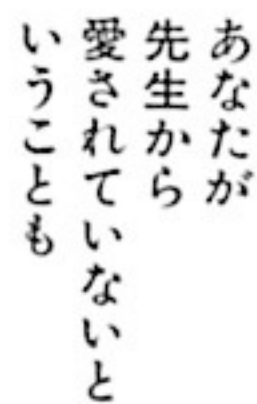 あなたが
先生から
愛されていないと
いうことも